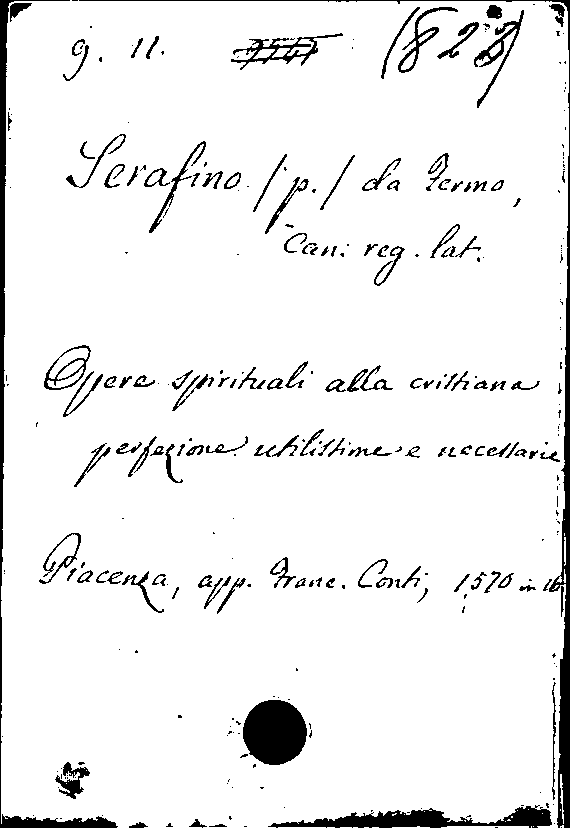 g. 11. (828)
Serafino /p./ da Fermo,
Can: reg. lat.
Opere spirituali alla cristiana
perfezione utilissime e necessarie
Piacenza, app. Franc. Conti, 1570 in 16